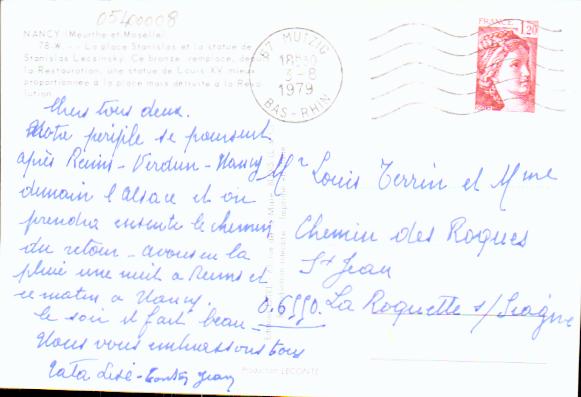 05400008
NANCY (Meurthe-et-Moselle)
78-W. - La place Stanislas et la statue de
Stanislas Lecsinsky. Ce bronze remplace, depuis
la Restauration, une statue de Louis XV mieux
proportionnée à la place mais détruite à la Révo-
lution.
67 MUTZIG
18H30
3-8
1979
BAS-RHIN
FRANCE
1,20
Chers tous deux.
Notre périple se poursuit
après Reims - Verdun - Nancy
demain l'Alsace et on
prendra ensuite le chemin
du retour - avons eu la
pluie une nuit à Reims et
ce matin à Nancy.
le soir il fait beau -
Nous vous embrassons tous
Tata Lisé - Tonton Jean
Mr Louis Terrin et Mme
Chemin des Roques
St Jean
0.6550. La Roquette s/ Siagne
Production LECONTE